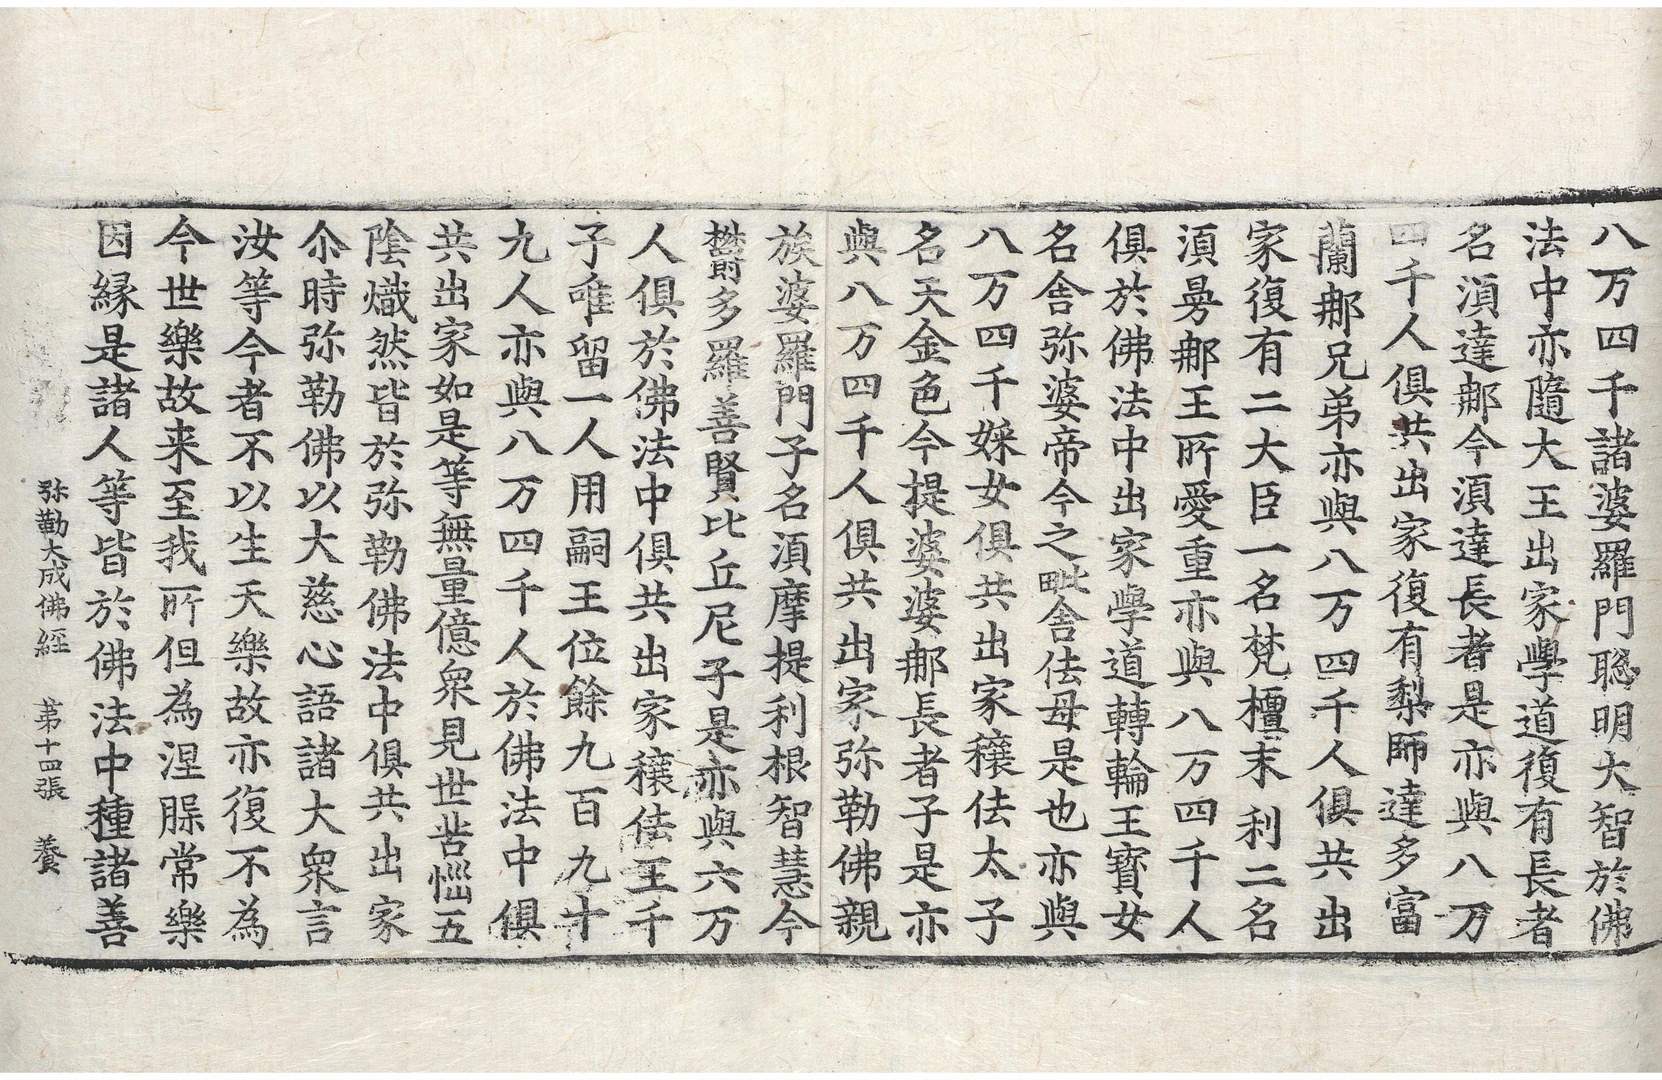 八万四千諸婆羅門聡明大智於佛
法中亦隨大王出家學道復有長者
名湏達䣑今湏達長者是亦與八万
四千人俱共出家復有梨師達多富
蘭䣑兄弟亦與八万四千人俱共出
家復有二大臣一名梵檀末利二名
湏曼䣑王所愛重亦與八万四千人
俱於佛法中出家學道轉輪王寳女
名舍弥婆帝今之毗舍佉母是也亦與
八万四千婇女俱共出家穰佉太子
名天金色今提婆婆䣑長者子是亦
與八万四千人俱共出家弥勒佛親
族婆羅門子名湏摩提利根智慧今
欝多羅善賢比丘尼子是亦與六万
人俱於佛法中俱共出家穰佉王千
子唯留一人用嗣王位餘九百九十
九人亦與八万四千人於佛法中俱
共出家如是等無量億衆見世苦惱五
陰熾然皆於弥勒佛法中俱共出家
尒時弥勒佛以大慈心語諸大衆言
汝等今者不以生天樂故亦復不為
今世樂故来至我所但為涅槃常樂
因緣是諸人等皆於佛法中種諸善
弥勒大成佛經　第十四張　養